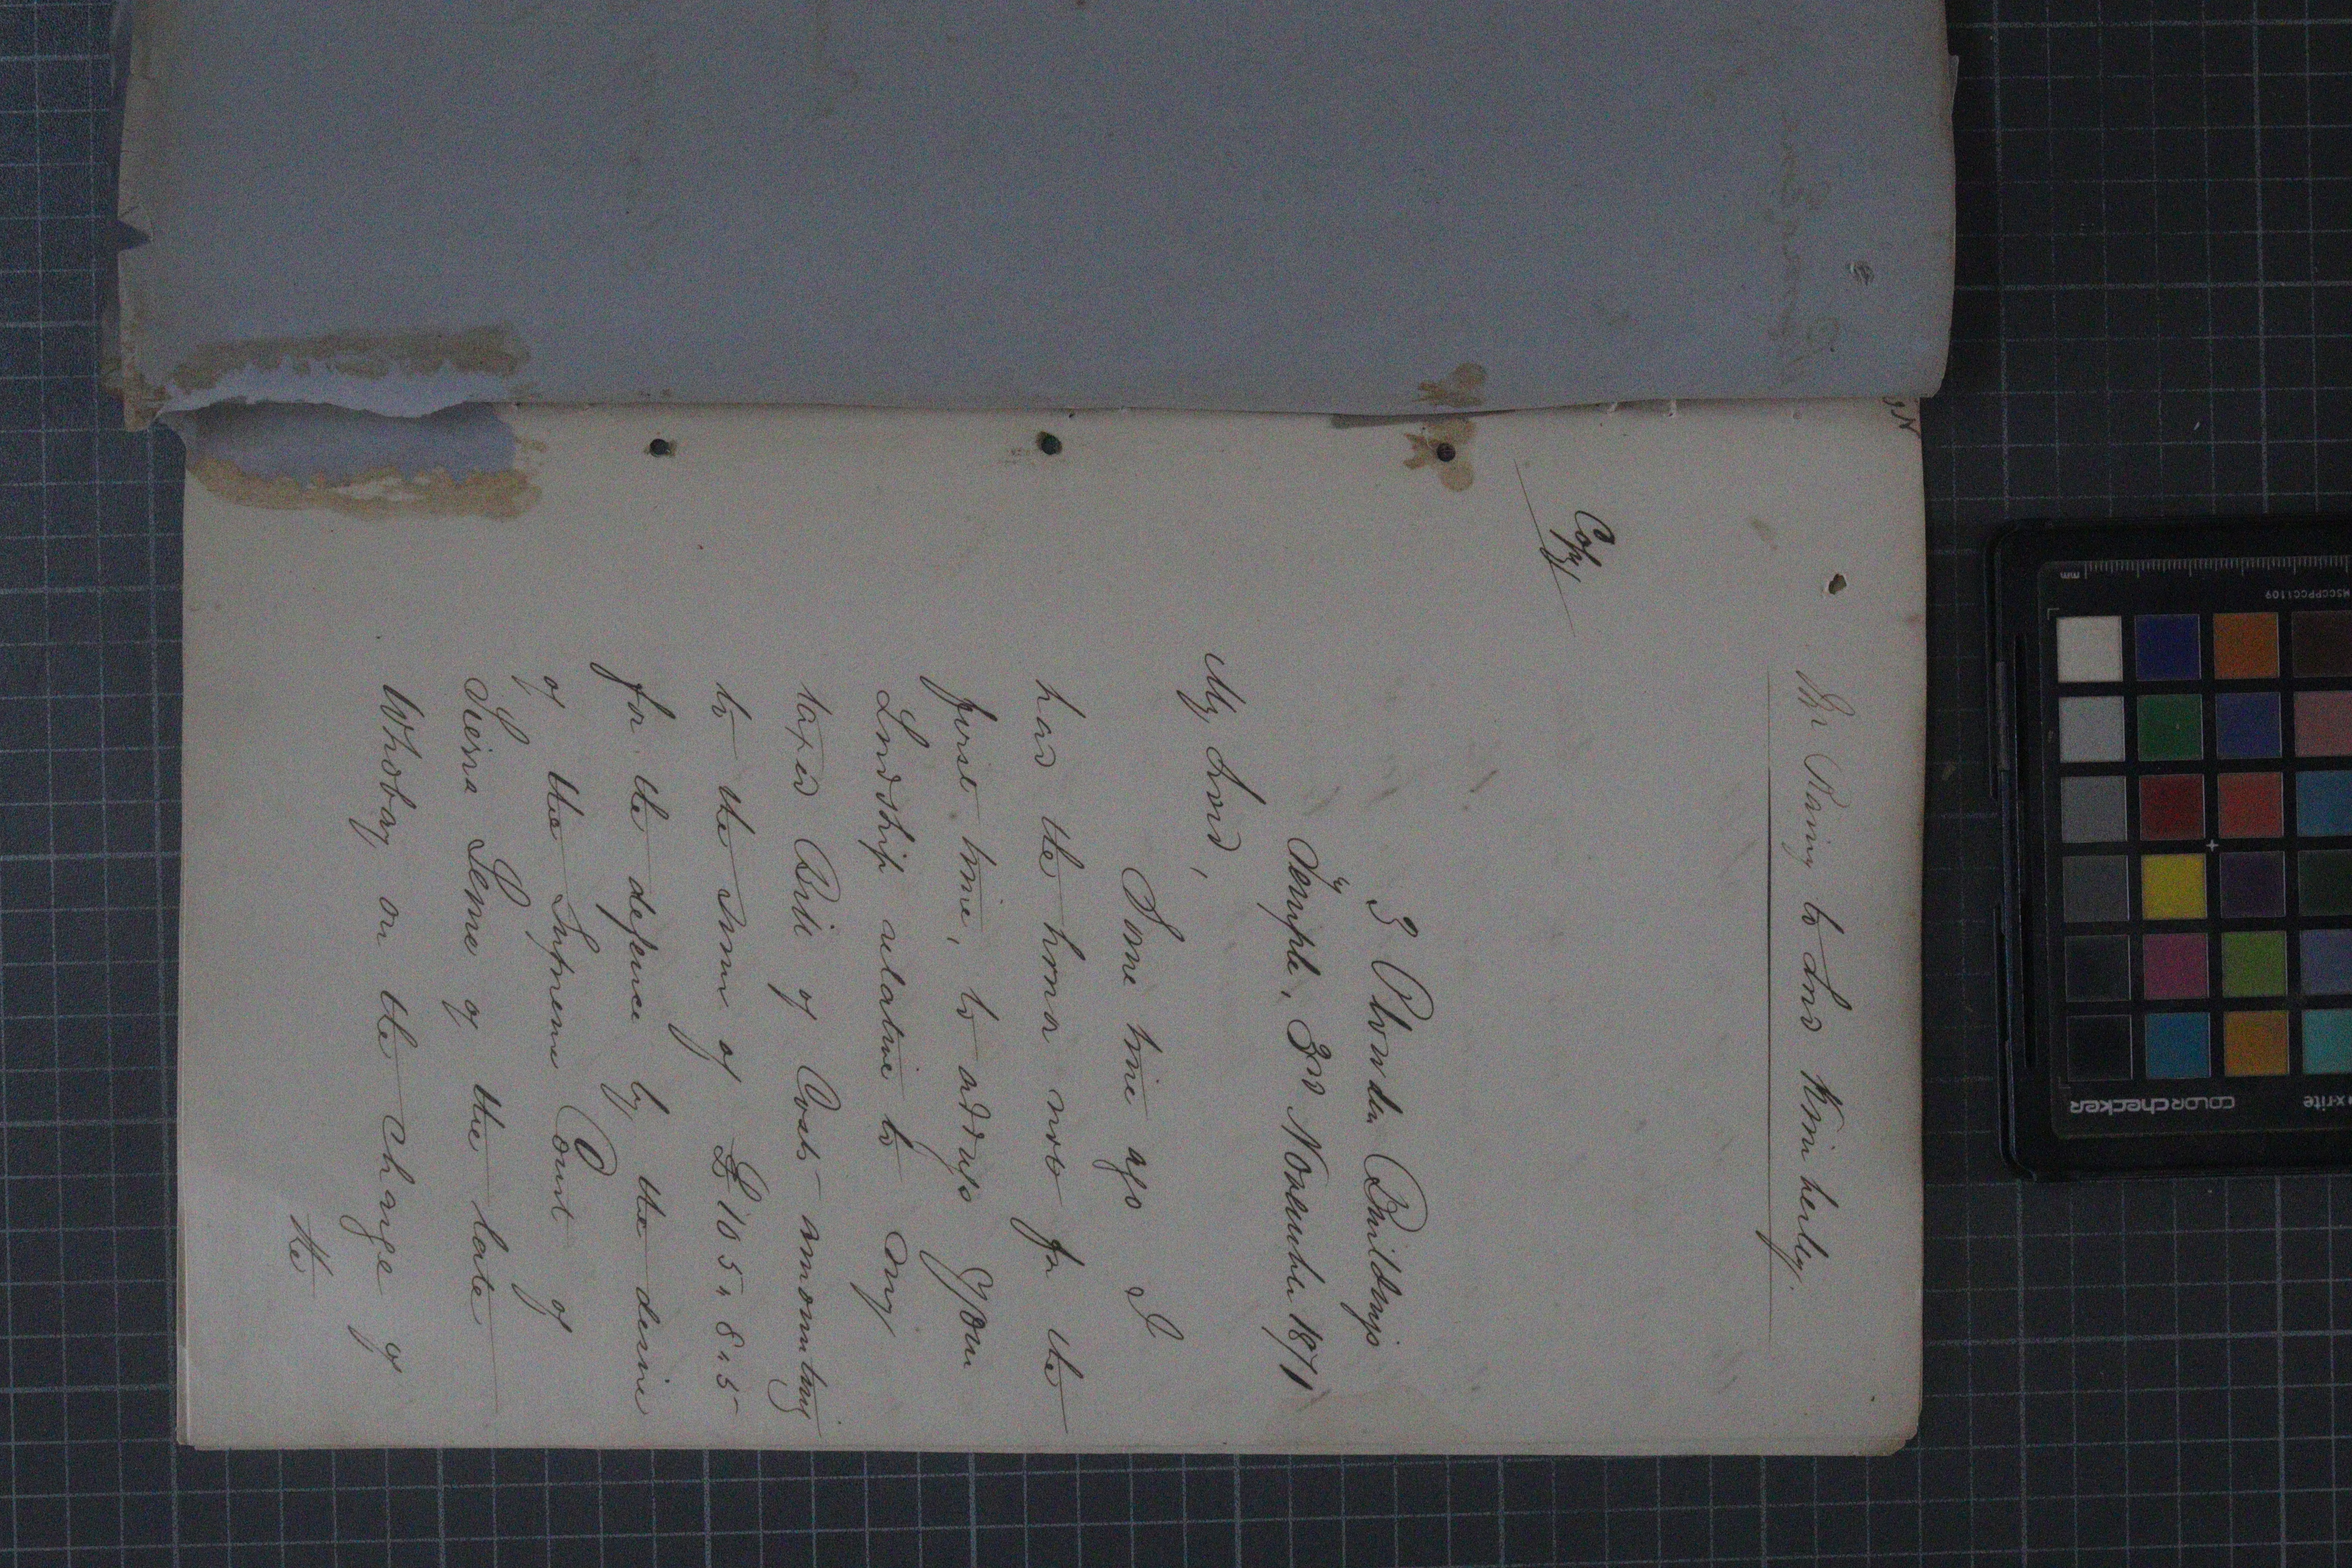 Mr Laing to Lord Kimberley.
Copy
3 Plowden Buildings
Temple, 3rd November 1871
My Lord,
Some time ago I
had the honor now for the
first time, to address Your
Lordship relative to my
taxed Bill of Costs amounting
to the sum of £105,,8,,5
for the defence by the desire
of the Supreme Court of
Sierra Leone of the late
Whobay on the charge of
the
colorchecker
x-rite
mm
MSCCPPCC1109